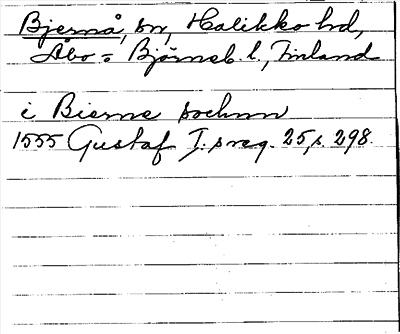 Bjernå, sn, Halikko hd,
Åbo = Björneb. l., Finland
i Bierne sochnn
1555 Gustaf I:s reg. 25, s. 298.